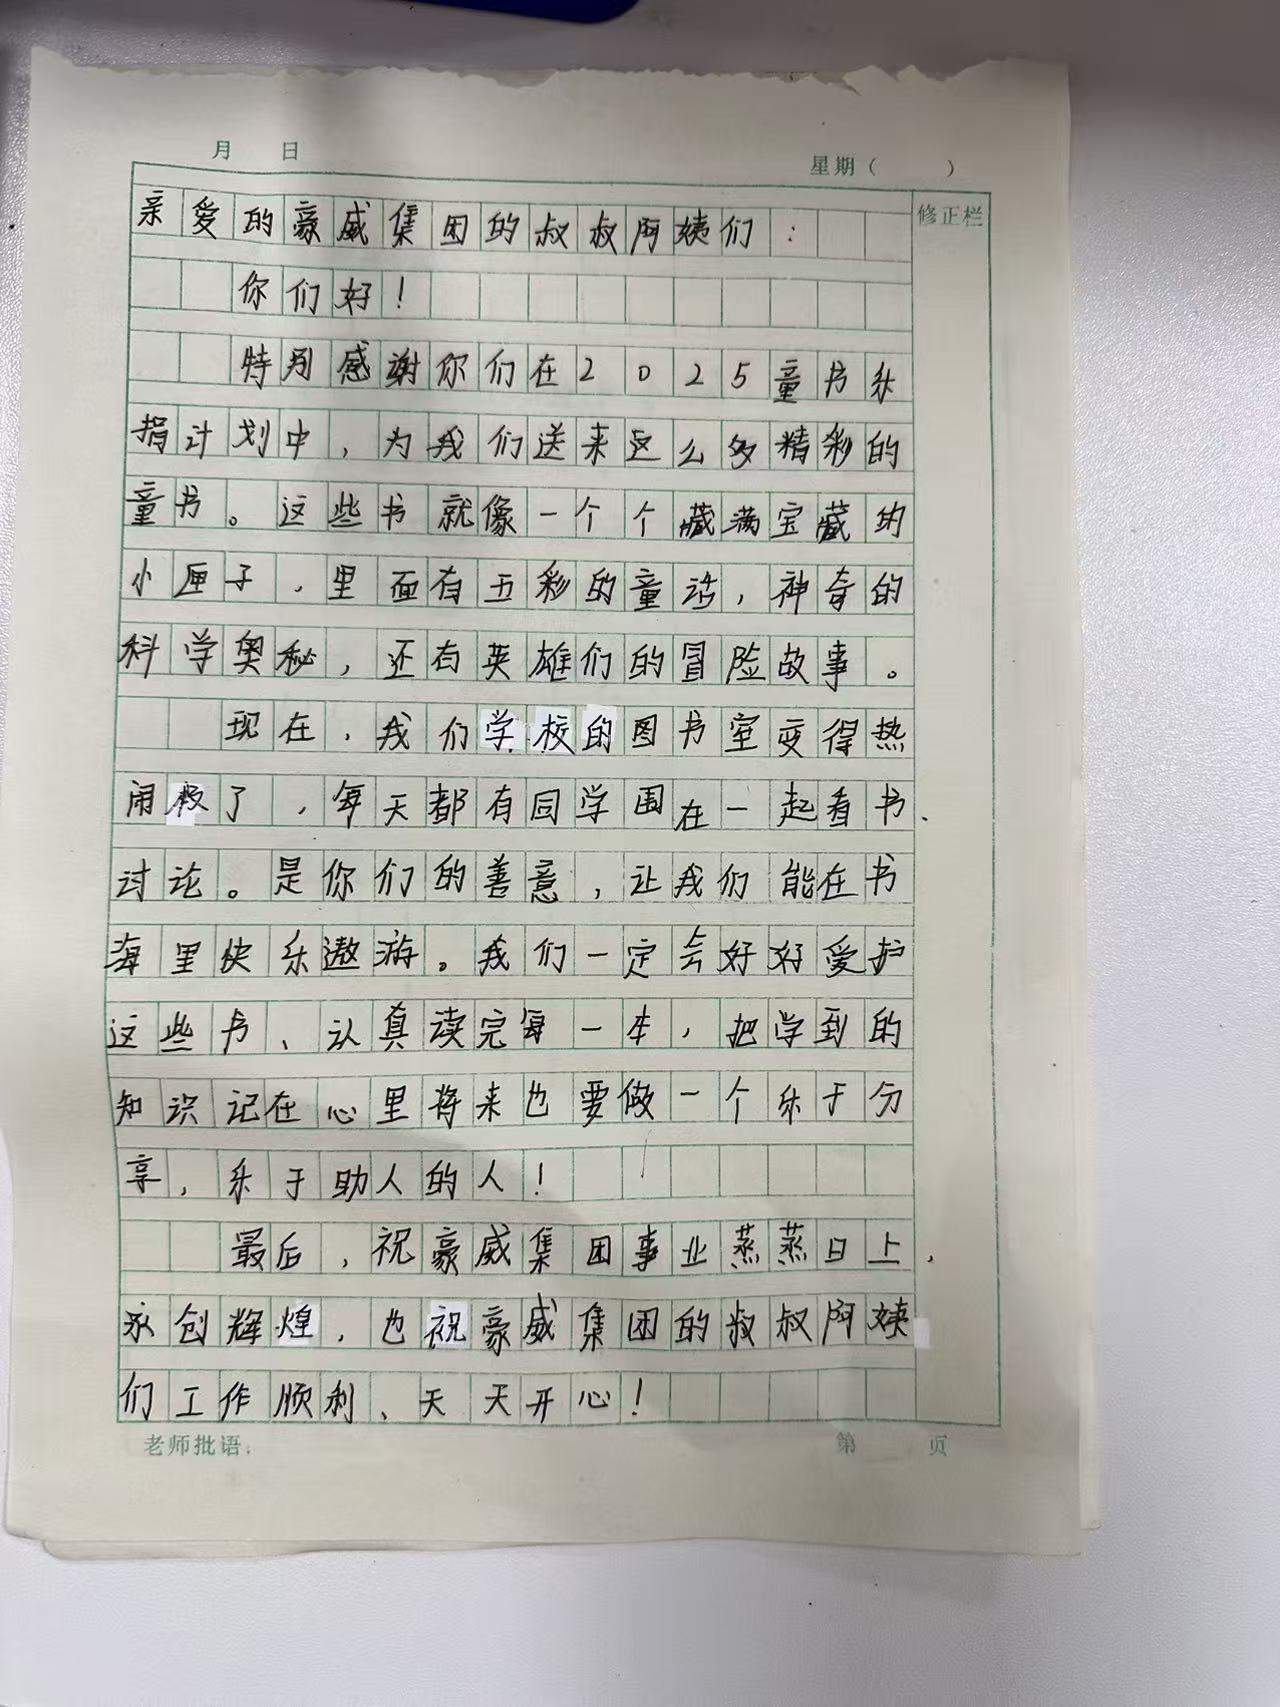 月 日 星期（ ）
修正栏
亲爱的豪威集团的叔叔阿姨们：
你们好！
特别感谢你们在2025童书乐
捐计划中，为我们送来这么多精彩的
童书。这些书就像一个个藏满宝藏的
小匣子，里面有五彩的童话，神奇的
科学奥秘，还有英雄们的冒险故事。
现在，我们学校的图书室变得热
闹极了，每天都有同学围在一起看书、
讨论。是你们的善意，让我们能在书
海里快乐遨游。我们一定会好好爱护
这些书、认真读完每一本，把学到的
知识记在心里将来也要做一个乐于分
享，乐于助人的人！
最后，祝豪威集团事业蒸蒸日上，
永创辉煌，也祝豪威集团的叔叔阿姨
们工作顺利、天天开心！
老师批语： 第 页